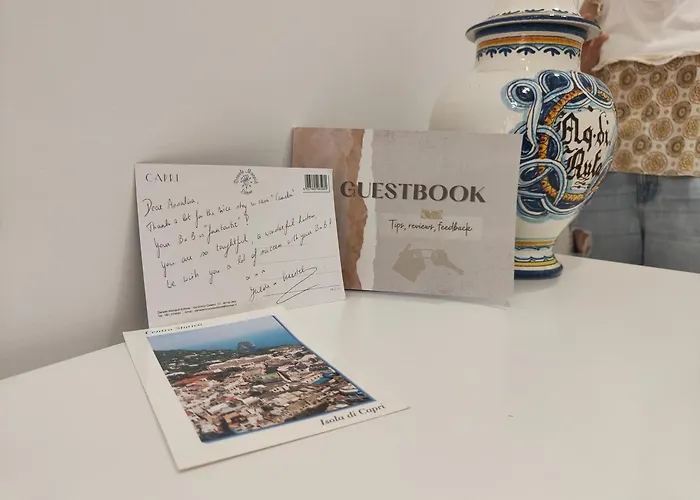 CAPRI
Dear Annalisa,
Thanks a lot for the nice stay in room "Canda"
Your B&B is fantastic!
You are so thoughtful, a wonderful
We wish you a lot of success with your B&B!
GUESTBOOK
Tips, reviews, feedback
Aq. di
Centro Storico
Isola di Capri